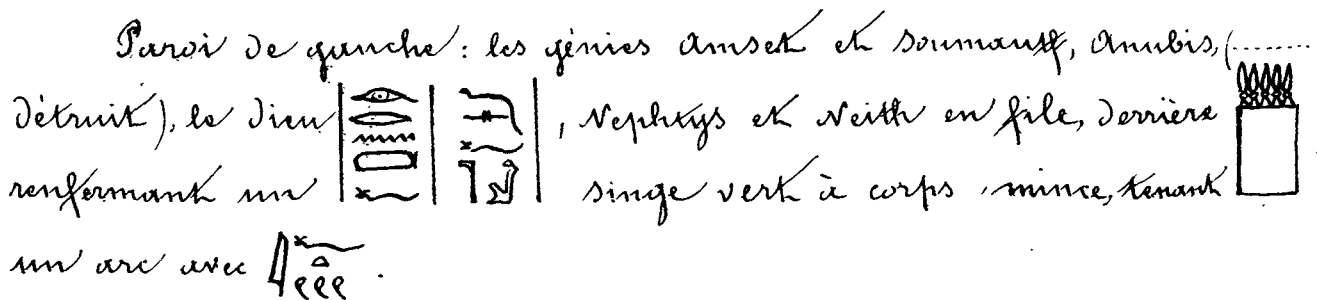 Paroi de gauche : les génies Amset et Soumautf, Anubis, (........
détruit), le dieu , Nephtys et Neith en file, derrière
renfermant un singe vert à corps mince, tenant
un arc avec .